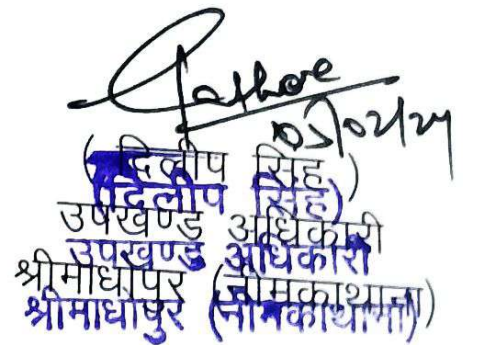 Rathore
05/02/24
(दिलीप सिंह)
(दिलीप सिंह)
उपखण्ड अधिकारी
उपखण्ड अधिकारी
श्रीमाधोपुर (नीमकाथाना)
श्रीमाधोपुर (नीमकाथाना)